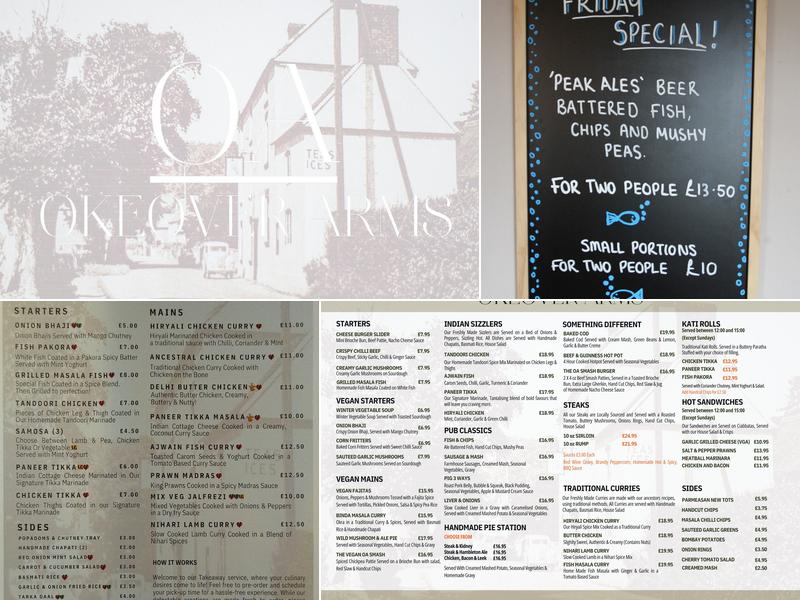 OA
TEAS
ICES
OKEOVER ARMS
FRIDAY
SPECIAL!
'PEAK ALES' BEER
BATTERED FISH,
CHIPS AND MUSHY
PEAS.
FOR TWO PEOPLE £13.50
SMALL PORTIONS
FOR TWO PEOPLE £10
STARTERS
ONION BHAJI £5.00
Onion Bhajis Served with Mango Chutney
FISH PAKORA £7.00
White Fish Coated in a Pakora Spicy Batter
Served with Mint Yoghurt
GRILLED MASALA FISH £8.00
Special Fish Coated in a Spice Blend,
Then Grilled to perfection!
TANDOORI CHICKEN £7.00
Pieces of Chicken Leg & Thigh Coated in
Our Homemade Tikka Marinade
SAMOSA (3) £4.50
Choose Between Lamb & Pea, Chicken
Tikka Or Vegetable
Served with Mint Yoghurt
PANEER TIKKA £6.00
Indian Cottage Cheese Marinated in Our
Signature Tikka Marinade
CHICKEN TIKKA £7.00
Chicken Thighs Coated in our Signature
Tikka Marinade
SIDES
POPADOMS & CHUTNEY TRAY £3.00
HANDMADE CHAPATI (2) £2.00
RED ONION MINT SALAD
CARROT & CUCUMBER SALAD £3.00
BASMATI RICE £3.00
GARLIC & ONION FRIED RICE £3.50
TARKA DAAL
MAINS
HIRYALI CHICKEN CURRY £11.00
Hiryali Marinated Chicken Cooked in
a traditional sauce with Chilli, Coriander & Mint
ANCESTRAL CHICKEN CURRY £11.00
Traditional Chicken Curry Cooked with
Chicken on the Bone
DELHI BUTTER CHICKEN £11.00
Authentic Butter Chicken, Creamy,
Buttery & Nutty!
PANEER TIKKA MASALA £10.00
Indian Cottage Cheese Cooked in a Creamy,
Coconut Curry Sauce
AJWAIN FISH CURRY £12.50
Toasted Carom Seeds & Yoghurt Cooked in a
Tomato Based Curry Sauce
PRAWN MADRAS £12.50
King Prawns Cooked in a Spicy Madras Sauce
MIX VEG JALFREZI £10.00
Mixed Vegetables Cooked with Onions & Peppers
in a Dry fry Sauce
NIHARI LAMB CURRY £12.50
Slow Cooked Lamb Curry Cooked in a Blend of
Nihari Spices
HOW IT WORKS
Welcome to our Takeaway service, where your culinary
desires come to life! Feel free to pre-order and schedule
your pick-up time for a hassle-free experience. While our
OKEOVER ARMS
STARTERS
CHEESE BURGER SLIDER £7.95
Mini Brioche Bun, Beef Patty, Nacho Cheese Sauce
CRISPY CHILLI BEEF £7.95
Crispy Beef, Sticky Garlic, Chilli & Ginger Sauce
CREAMY GARLIC MUSHROOMS £7.95
Creamy Garlic Mushrooms on Sourdough
GRILLED MASALA FISH £7.95
Homemade Fish Masala Coated on White Fish
VEGAN STARTERS
WINTER VEGETABLE SOUP £6.95
Winter Vegetable Soup Served with Toasted Sourdough
ONION BHAJI £6.95
Crispy Onion Bhaji, Served with Mango Chutney
CORN FRITTERS £6.95
Baked Corn Fritters Served with Sweet Chilli Sauce
SAUTEED GARLIC MUSHROOMS £7.95
Sauteed Garlic Mushrooms Served on Sourdough
VEGAN MAINS
VEGAN FAJITAS £15.95
Onions, Peppers & Mushrooms Tossed with a Fajita Spice
Served with Tortillas, Pickled Onions, Salsa & Spicy Pea Rice
BINDA MASALA CURRY £15.95
Okra in a Traditional Curry & Spices, Served with Basmati
Rice & Handmade Chapati
WILD MUSHROOM & ALE PIE £17.95
Served with Seasonal Vegetables, Hand Cut Chips & Gravy
THE VEGAN OA SMASH £16.95
Spiced Chickpea Pattie Served on a Brioche Bun with salad,
Red Slaw & Handcut Chips
INDIAN SIZZLERS
Our Freshly Made Sizzlers are Served on a Bed of Onions &
Peppers, Sizzling Hot. All Dishes are Served with Handmade
Chapatis, Basmati Rice, House Salad
TANDOORI CHICKEN £18.95
Our Homemade Tandoori Spice Mix Marinated on Chicken Legs &
Thighs
AJWAIN FISH £18.95
Carom Seeds, Chilli, Garlic, Turmeric & Coriander
PANEER TIKKA £17.95
Our Signature Marinade, Tantalising blend of bold flavours that
will leave you craving more.
HIRYALI CHICKEN £18.95
Mint, Coriander, Garlic & Green Chilli
PUB CLASSICS
FISH & CHIPS £16.95
Ale Battered Fish, Hand Cut Chips, Mushy Peas
SAUSAGE & MASH £16.95
Farmhouse Sausages, Creamed Mash, Seasonal
Vegetables, Gravy
PIG 3 WAYS £16.95
Roast Pork Belly, Bubble & Squeak, Black Pudding,
Seasonal Vegetables, Apple & Mustard Cream Sauce
LIVER & ONIONS £16.95
Slow Cooked Liver in a Gravy with Caramelised Onions,
Served with Creamed Mashed Potato & Seasonal Vegetables
HANDMADE PIE STATION
CHOOSE FROM
Steak & Kidney £16.95
Steak & Hambleton Ale £16.95
Chicken, Bacon & Leek £16.95
Served With Creamed Mashed Potatoes, Seasonal Vegetables &
Homemade Gravy
SOMETHING DIFFERENT
BAKED COD £19.95
Baked Cod Served with Cream Mash, Green Beans & Lemon,
Garlic & Butter Creme
BEEF & GUINNESS HOT POT £18.95
4 Hour Cooked Hotpot Served with Seasonal Vegetables
THE OA SMASH BURGER £16.95
2 X 4 oz Beef Smash Patties, Served in a Toasted Brioche
Bun, Extra Large Gherkin, Hand Cut Chips, Red Slaw & Jug
of Homemade Nacho Cheese Sauce
STEAKS
All our Steaks are Locally Sourced and Served with a Roasted
Tomato, Buttery Mushrooms, Onion Rings, Hand Cut Chips,
House Salad
10 oz SIRLOIN £24.95
10 oz RUMP £21.95
Sauces £3.00 Each
Red Wine Gravy, Brandy Peppercorn, Homemade Hot & Spicy,
BBQ Sauce
TRADITIONAL CURRIES
Our Freshly Made Curries are made with our ancestors recipes,
using traditional methods, All Curries are Served with Handmade
Chapatis, Basmati Rice, House Salad
HIRYALI CHICKEN CURRY £18.95
Our Hiryali Spice Mix Cooked in a Traditional Curry
BUTTER CHICKEN £18.95
Slightly Sweet, Authentic & Creamy (Contains Nuts)
NIHARI LAMB CURRY £19.95
Slow Cooked Lamb in a Nihari Spice Mix
FISH MASALA CURRY £19.95
Home Made Fish Masala with Ginger & Garlic in a
Tomato Based Sauce
KATI ROLLS
Served between 12:00 and 15:00
(Except Sundays)
Traditional Kati Rolls, Served in a Buttery Paratha
Stuffed with your choice of filling.
CHICKEN TIKKA £12.95
PANEER TIKKA £11.95
FISH PAKORA £12.95
Served with Coriander Chutney, Mint Yoghurt & Salad.
HOT SANDWICHES
Served between 12:00 and 15:00
(Except Sundays)
Our Sandwiches are Served on Ciabattas, Served
with our House Salad & Crisps
GARLIC GRILLED CHEESE (VGA) £10.95
SALT & PEPPER PRAWNS £13.95
MEATBALL MARINARA £11.95
CHICKEN AND BACON £11.95
SIDES
PARMESEAN NEW TOTS £5.95
HANDCUT CHIPS £3.75
MASALA CHILLI CHIPS £4.95
SAUTEED GARLIC GREENS £4.95
BOMBAY POTATOES £4.95
ONION RINGS £3.50
CHERRY TOMATO SALAD £4.95
CREAMED MASH £2.50